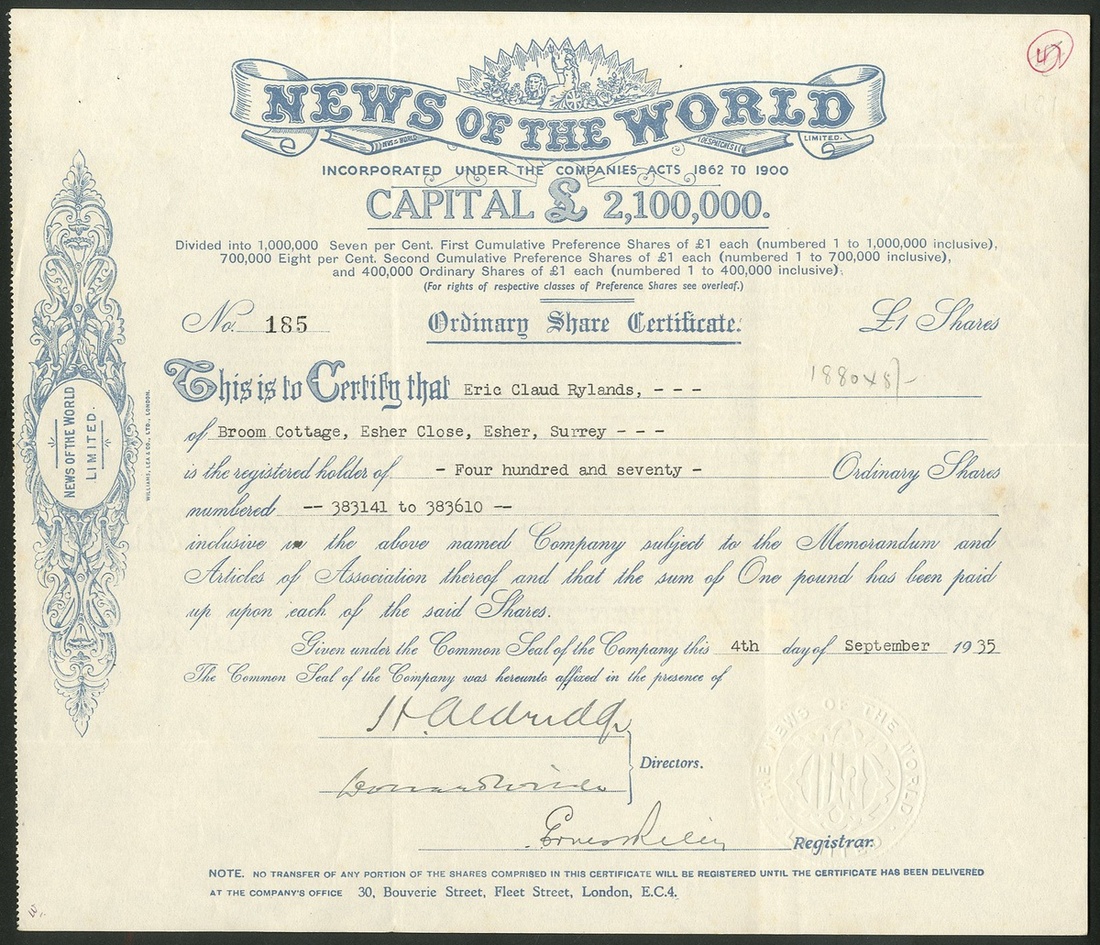 47
NEWS OF THE WORLD
NEWS OF THE WORLD DESPATCHES LIMITED.
INCORPORATED UNDER THE COMPANIES ACTS 1862 TO 1900
CAPITAL £ 2,100,000.
Divided into 1,000,000 Seven per Cent. First Cumulative Preference Shares of £1 each (numbered 1 to 1,000,000 inclusive),
700,000 Eight per Cent. Second Cumulative Preference Shares of £1 each (numbered 1 to 700,000 inclusive),
and 400,000 Ordinary Shares of £1 each (numbered 1 to 400,000 inclusive).
(For rights of respective classes of Preference Shares see overleaf.)
No. 185 Ordinary Share Certificate. £1 Shares
1880 x 8/-
This is to Certify that Eric Claud Rylands, - - -
of Broom Cottage, Esher Close, Esher, Surrey - - -
is the registered holder of - Four hundred and seventy - Ordinary Shares
numbered -- 383141 to 383610 --
inclusive in the above named Company subject to the Memorandum and
Articles of Association thereof and that the sum of One pound has been paid
up upon each of the said Shares.
Given under the Common Seal of the Company this 4th day of September 1935
The Common Seal of the Company was hereunto affixed in the presence of
H. Aldridge
Directors.
Ernest Riley
Registrar.
THE NEWS OF THE WORLD LIMITED
NOTE. NO TRANSFER OF ANY PORTION OF THE SHARES COMPRISED IN THIS CERTIFICATE WILL BE REGISTERED UNTIL THE CERTIFICATE HAS BEEN DELIVERED
AT THE COMPANY'S OFFICE 30, Bouverie Street, Fleet Street, London, E.C.4.
NEWS OF THE WORLD
LIMITED.
WILLIAMS, LEA & CO., LTD., LONDON.